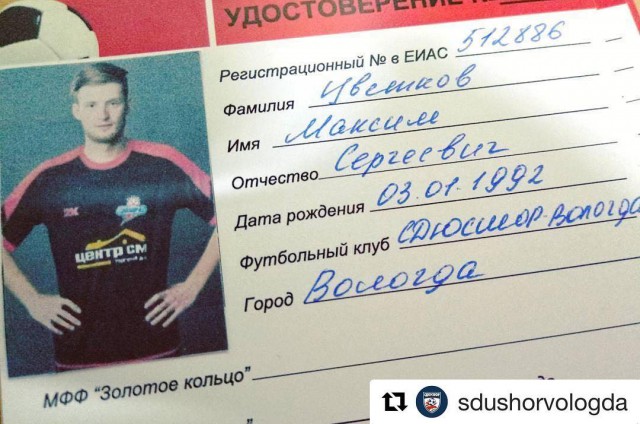 УДОСТОВЕРЕНИЕ №
Регистрационный № в ЕИАС 512886
Фамилия Цветков
Имя Максим
Отчество Сергеевич
Дата рождения 03.01.1992
Футбольный клуб СДЮСШОР-Вологда
Город Вологда
центр см
МФФ "Золотое кольцо"
"
до
sdushorvologda